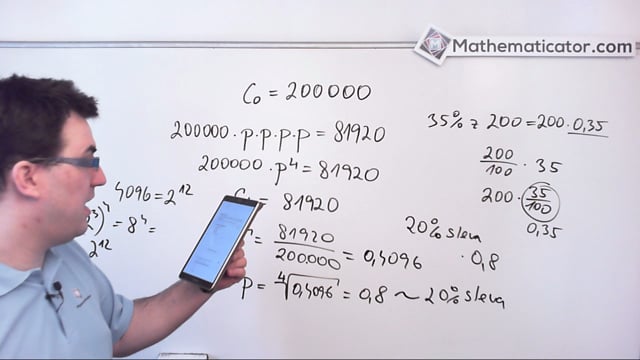 Mathematicator.com
C₀ = 200000
200000·p·p·p·p = 81920
200000·p⁴ = 81920
81920
81920
200000
= 0,4096
p = ⁴√0,4096 = 0,8 ~ 20% sleva
4096 = 2¹²
= 8⁴ =
2¹²
35% z 200 = 200·0,35
200
100
· 35
200 ·
35
100
0,35
20% sleva
· 0,8